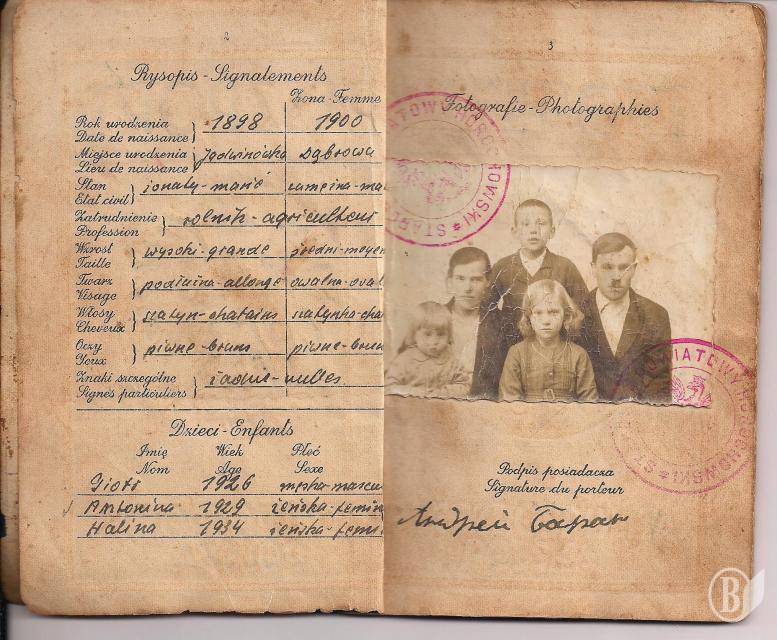 2
Rysopis - Signalements
Żona - Femme
Rok urodzenia
Date de naissance
1898
1900
Miejsce urodzenia
Lieu de naissance
Jadwinówka
Dąbrowa
Stan
Etat civil
żonaty - marié
zamężna - ma
Zatrudnienie
Profession
rolnik - agriculteur
Wzrost
Taille
wysoki - grande
średni - moyen
Twarz
Visage
podłużna - allongé
owalna - oval
Włosy
Cheveux
szatyn - chatains
szatynka - cha
Oczy
Yeux
piwne - bruns
piwne - brun
Znaki szczególne
Signes particuliers
żadne - nulles
Dzieci - Enfants
Imię Wiek Płeć
Nom Age Sexe
Piotr 1926 męska - mascu
Antonina 1929 żeńska - femini
Halina 1934 żeńska - femi
3
Fotografie - Photographies
Podpis posiadacza
Signature du porteur
Андрей
B